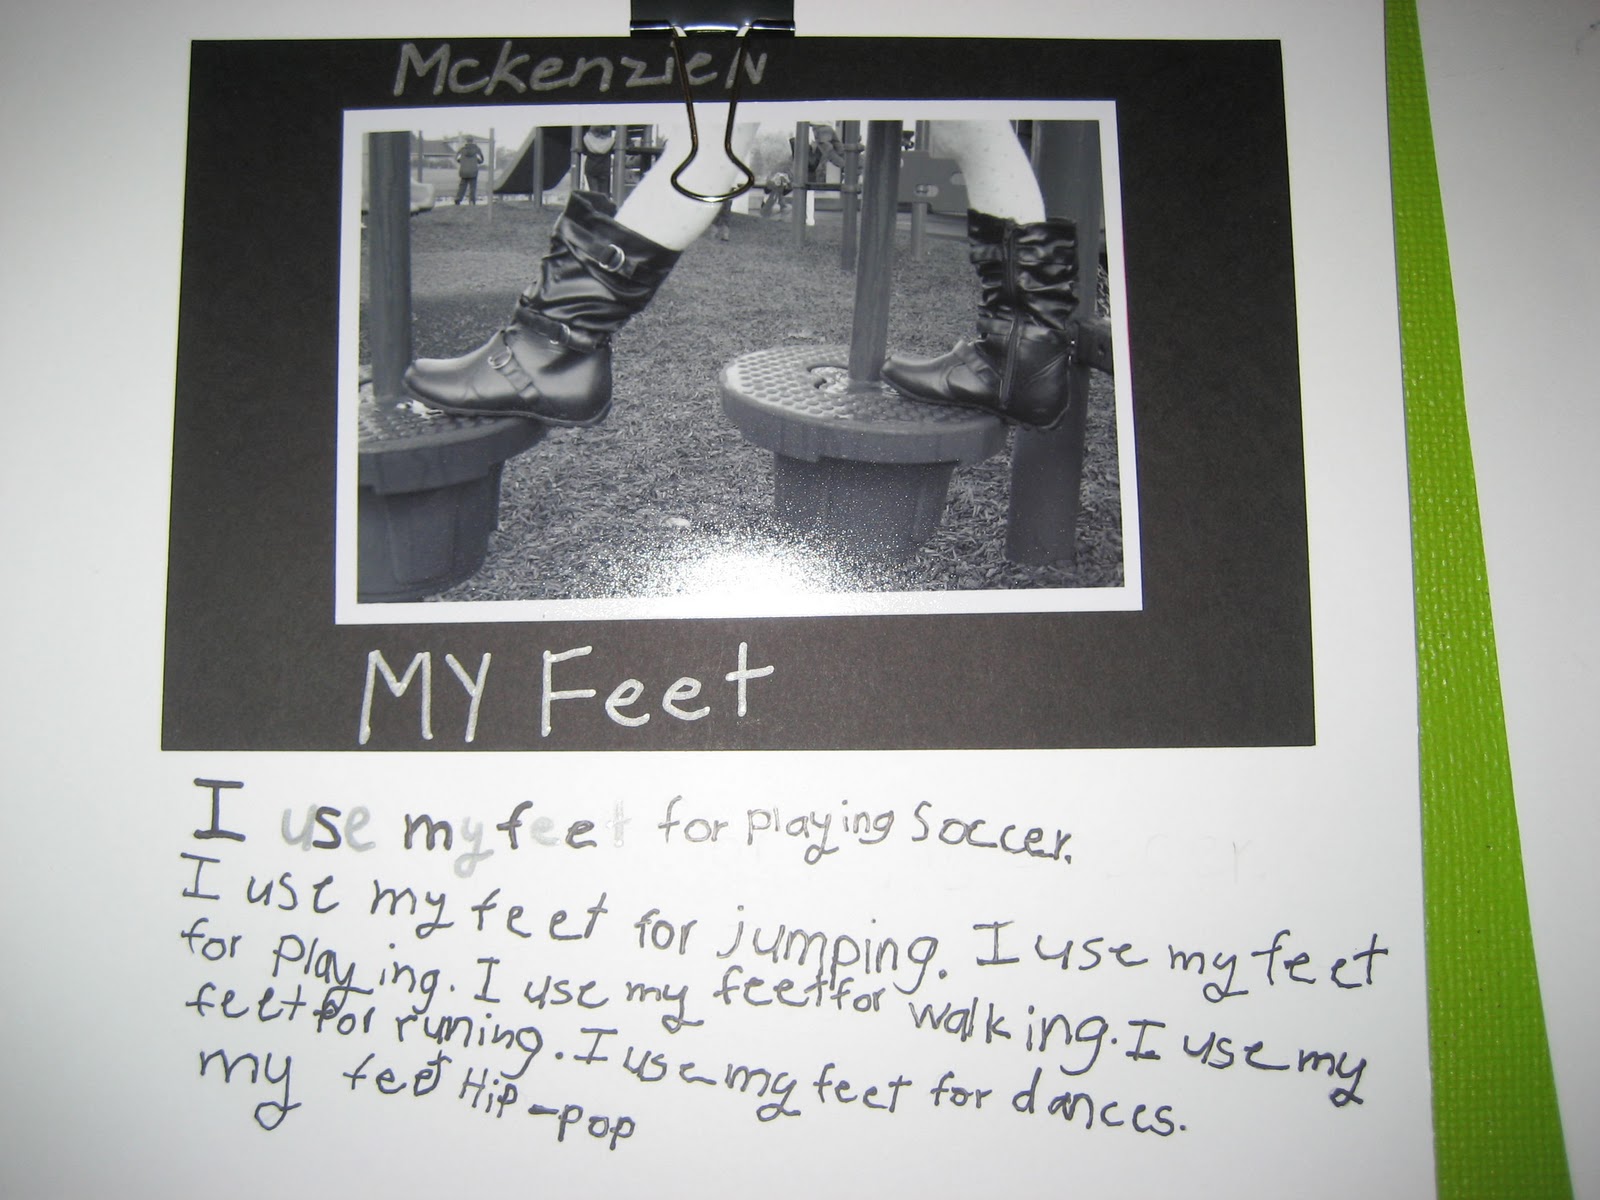 Mckenzie N
MY Feet
I use my feet for playing Soccer.
I use my feet for jumping. I use my feet
for playing. I use my feet for walking. I use my
feet for runing. I use my feet for dances.
my feet Hip-pop